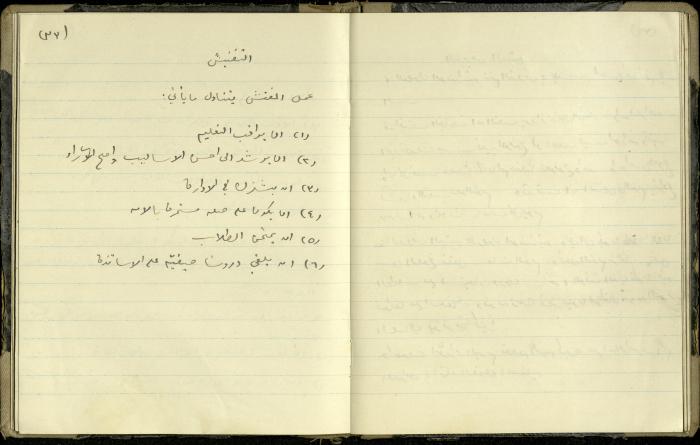 (٣٦)
التفتيش
عمل المفتش يتناول ما يأتي:
(١) ان يراقب التعليم
(٢) ان يرشد الى احسن الاساليب وانجح
(٣) ان يشترك في الادارة
(٤) ان يكون على صلة مستمرة بالامة
(٥) ان يمتحن الطلاب
(٦) ان يلقي دروسا صيفيّة على الاساتذة